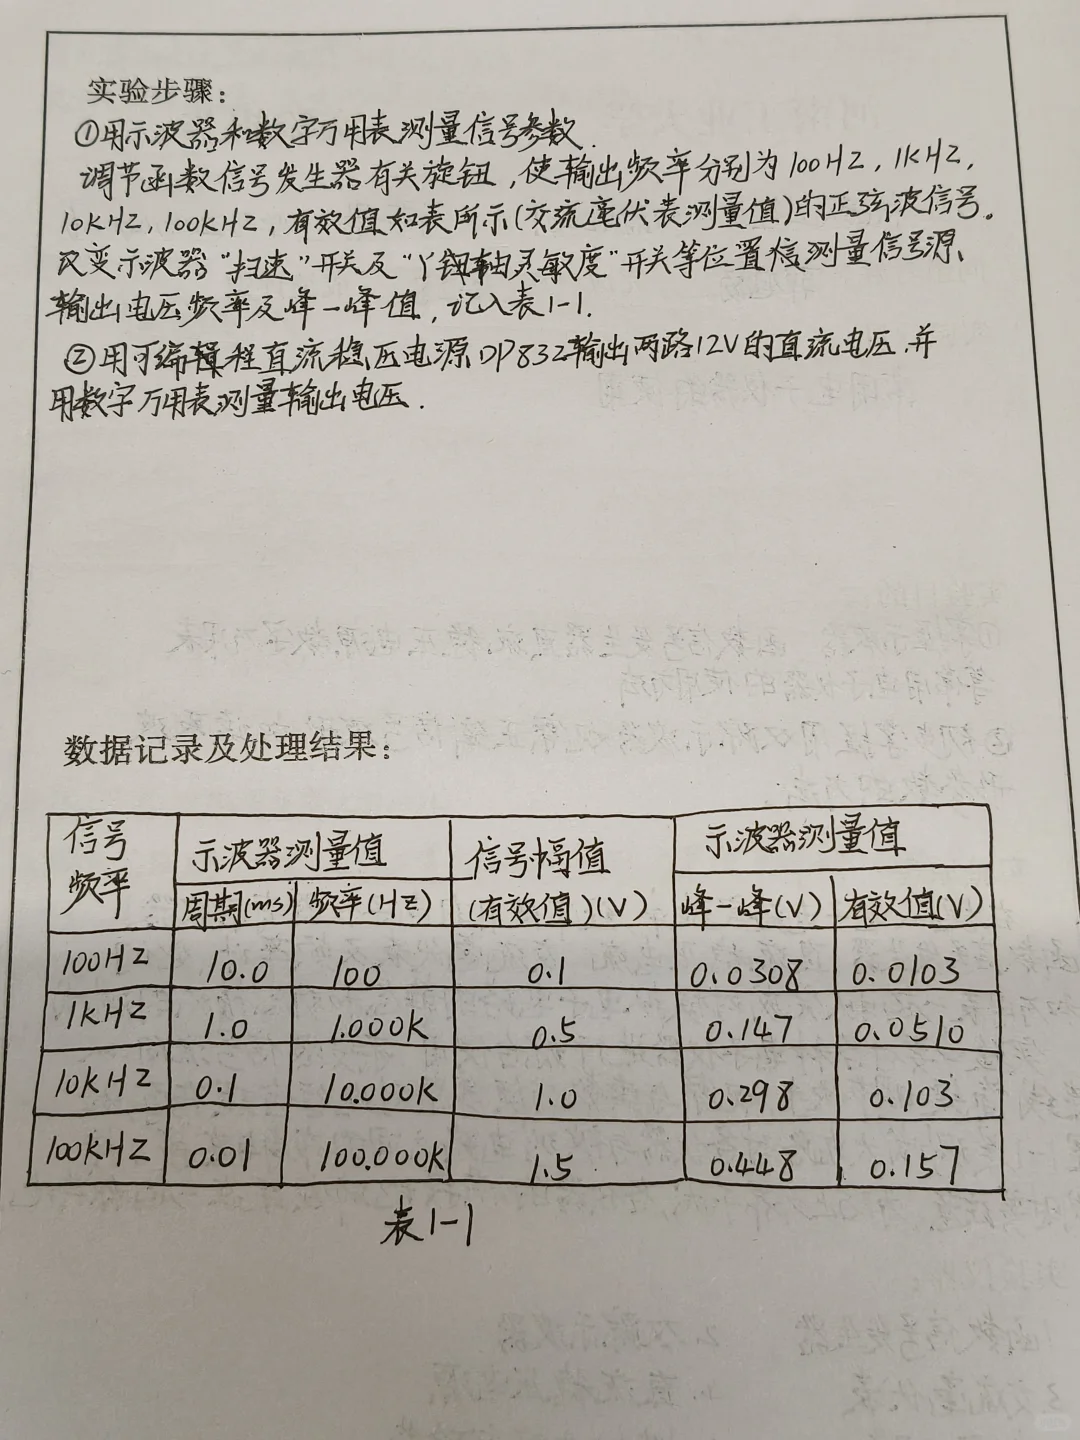 实验步骤:
①用示波器和数字万用表测量信号参数.
调节函数信号发生器有关旋钮,使输出频率分别为100HZ,1KHZ,
10KHZ,100KHZ,有效值如表所示(交流毫伏表测量值)的正弦波信号。
改变示波器“扫速”开关及“丫轴灵敏度”开关等位置,测量信号源、
输出电压频率及峰一峰值,记入表1-1.
②用可编程直流稳压电源DP832输出两路12V的直流电压.并
用数字万用表测量输出电压.
数据记录及处理结果:
信号频率 示波器测量值 信号幅值(有效值)(V) 示波器测量值
周期(ms) 频率(HZ) 峰一峰(V) 有效值(V)
100HZ 10.0 100 0.1 0.0308 0.0103
1KHZ 1.0 1.000K 0.5 0.147 0.0510
10KHZ 0.1 10.000K 1.0 0.298 0.103
100KHZ 0.01 100.000K 1.5 0.448 0.157
表1-1